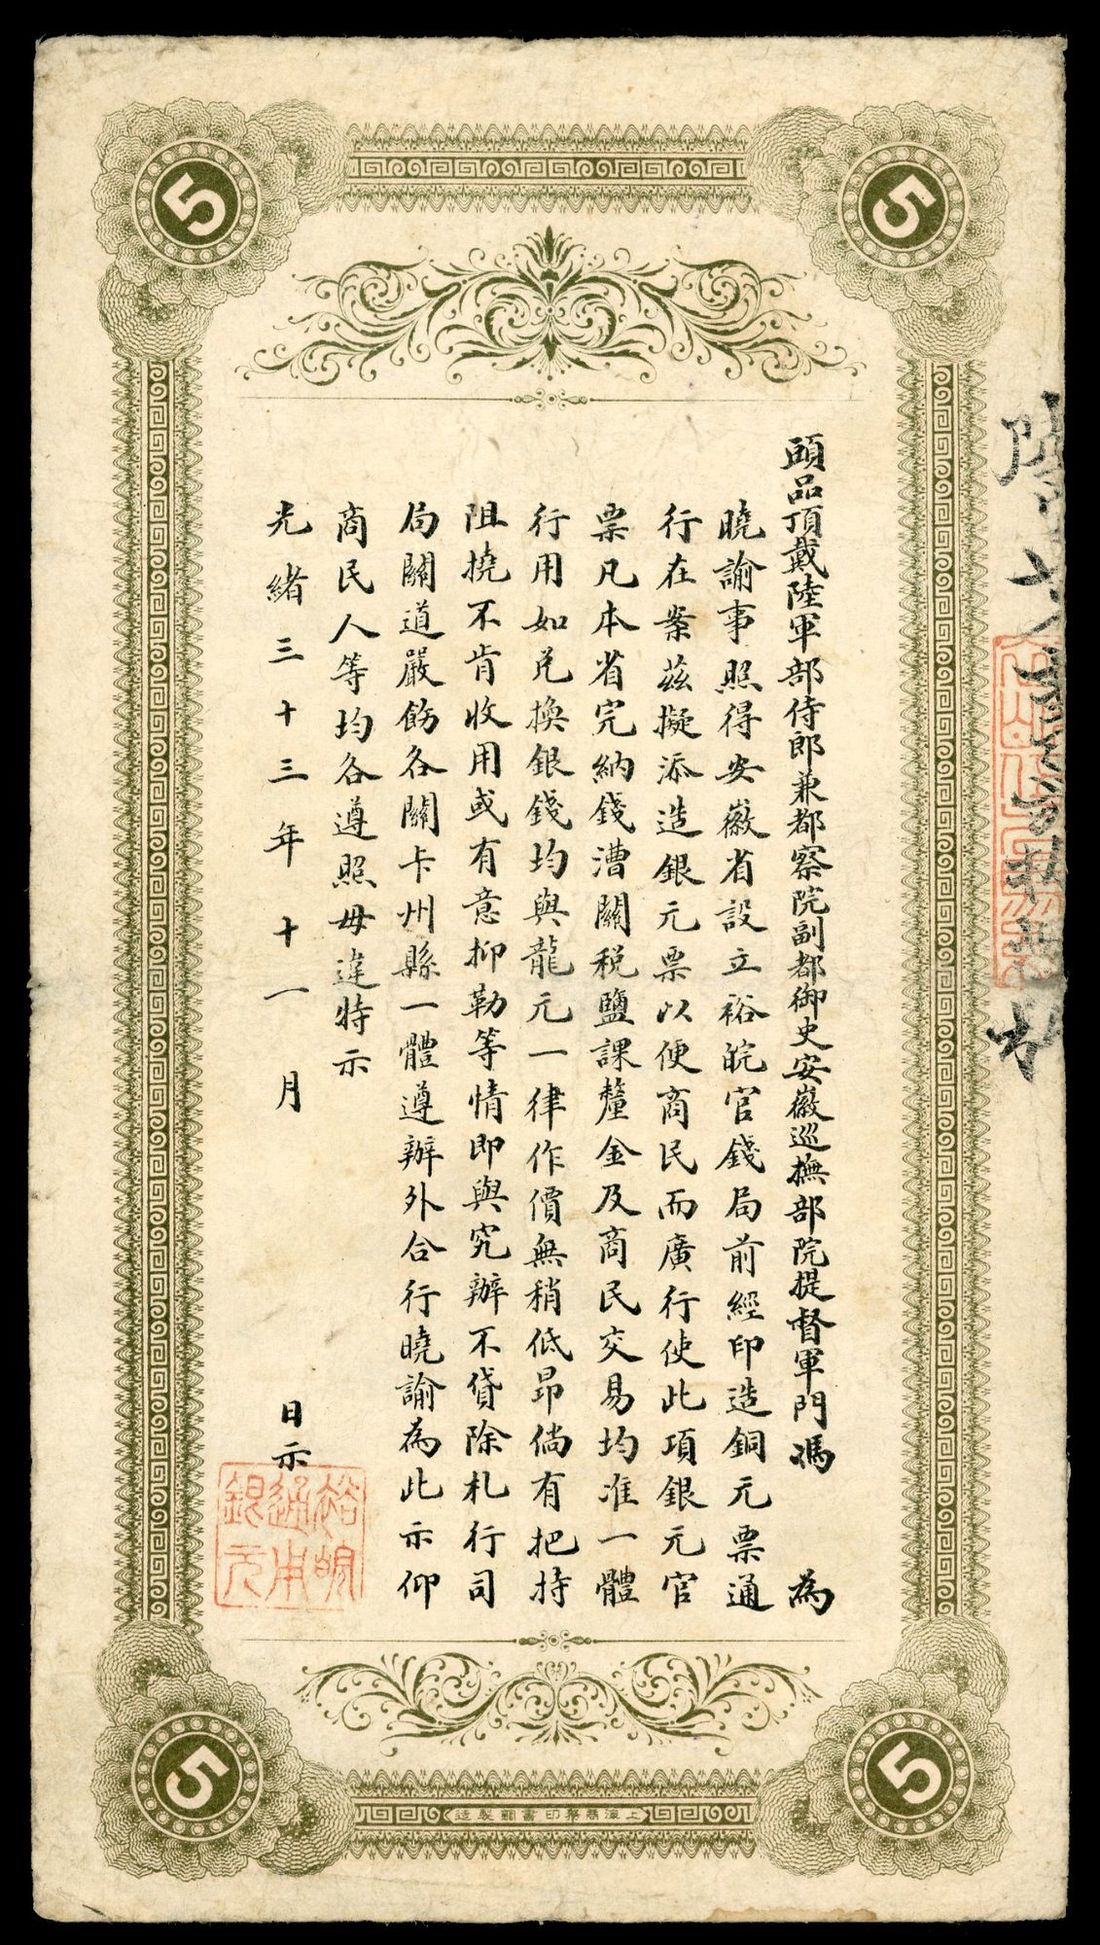 5
5
頭品頂戴陸軍部侍郎兼都察院副都御史安徽巡撫部院提督軍門馮 為
曉諭事照得安徽省設立裕皖官錢局前經印造銅元票通
行在案茲擬添造銀元票以便商民而廣行使此項銀元官
票凡本省完納錢漕關稅鹽課釐金及商民交易均准一體
行用如兌換銀錢均與龍元一律作價無稍低昂倘有把持
阻撓不肯收用或有意抑勒等情即與究辦不貸除札行司
局關道嚴飭各關卡州縣一體遵辦外合行曉諭為此示仰
商民人等均各遵照毋違特示
光緒三十三年十一月 日示
裕皖
通用
銀元
5
5